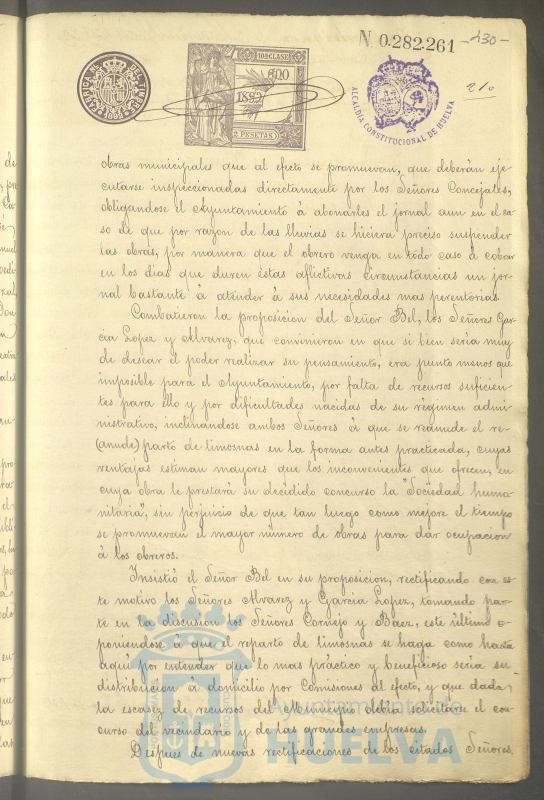 N 0.282.261 -430-
10ª CLASE
1892
2 PESETAS
ALCALDIA CONSTITUCIONAL DE HUELVA
obras municipales que al efecto se promuevan, que deberán eje-
cutarse inspeccionadas directamente por los Señores Concejales,
obligandose el Ayuntamiento á abonarles el jornal aun en el ca-
so de que por razon de las lluvias se hiciera preciso suspender
las obras, por manera que el obrero venga en todo caso á cobrar
en los dias que duren estas aflictivas circunstancias un jor-
nal bastante á atender á sus necesidades mas perentorias.
Combatieron la proposicion del Señor Bel, los Señores Gar-
cia Lopez y Alvarez, que convinieron en que si bien seria muy
de desear el poder realizar su pensamiento, era punto menos que
imposible para el Ayuntamiento, por falta de recursos suficien-
tes para ello y por dificultades nacidas de su régimen admi-
nistrativo, inclinandose ambos Señores á que se reanude el re-
(anude) parto de limosnas en la forma antes practicada, cuyas
ventajas estiman mayores que los inconvenientes que ofrecen, en
cuya obra le prestará su decidido concurso la "Sociedad huma-
nitaria", sin perjuicio de que tan luego como mejore el tiempo
se promuevan el mayor número de obras para dar ocupacion
á los obreros.
Insistió el Señor Bel en su proposicion, rectificando con es-
te motivo los Señores Alvarez y Garcia Lopez, tomando par-
te en la discusion los Señores Cornejo y Baez, este último o-
poniendose á que el reparto de limosnas se haga como hasta
aquí por entender que lo mas práctico y beneficioso seria su
distribucion á domicilio por Comisiones al efecto, y que dada
la escasez de recursos del Municipio debia solicitarse el con-
curso del vecindario y de las grandes empresas.
Despues de nuevas rectificaciones de los citados Señores,
Ayuntamiento de
HUELVA